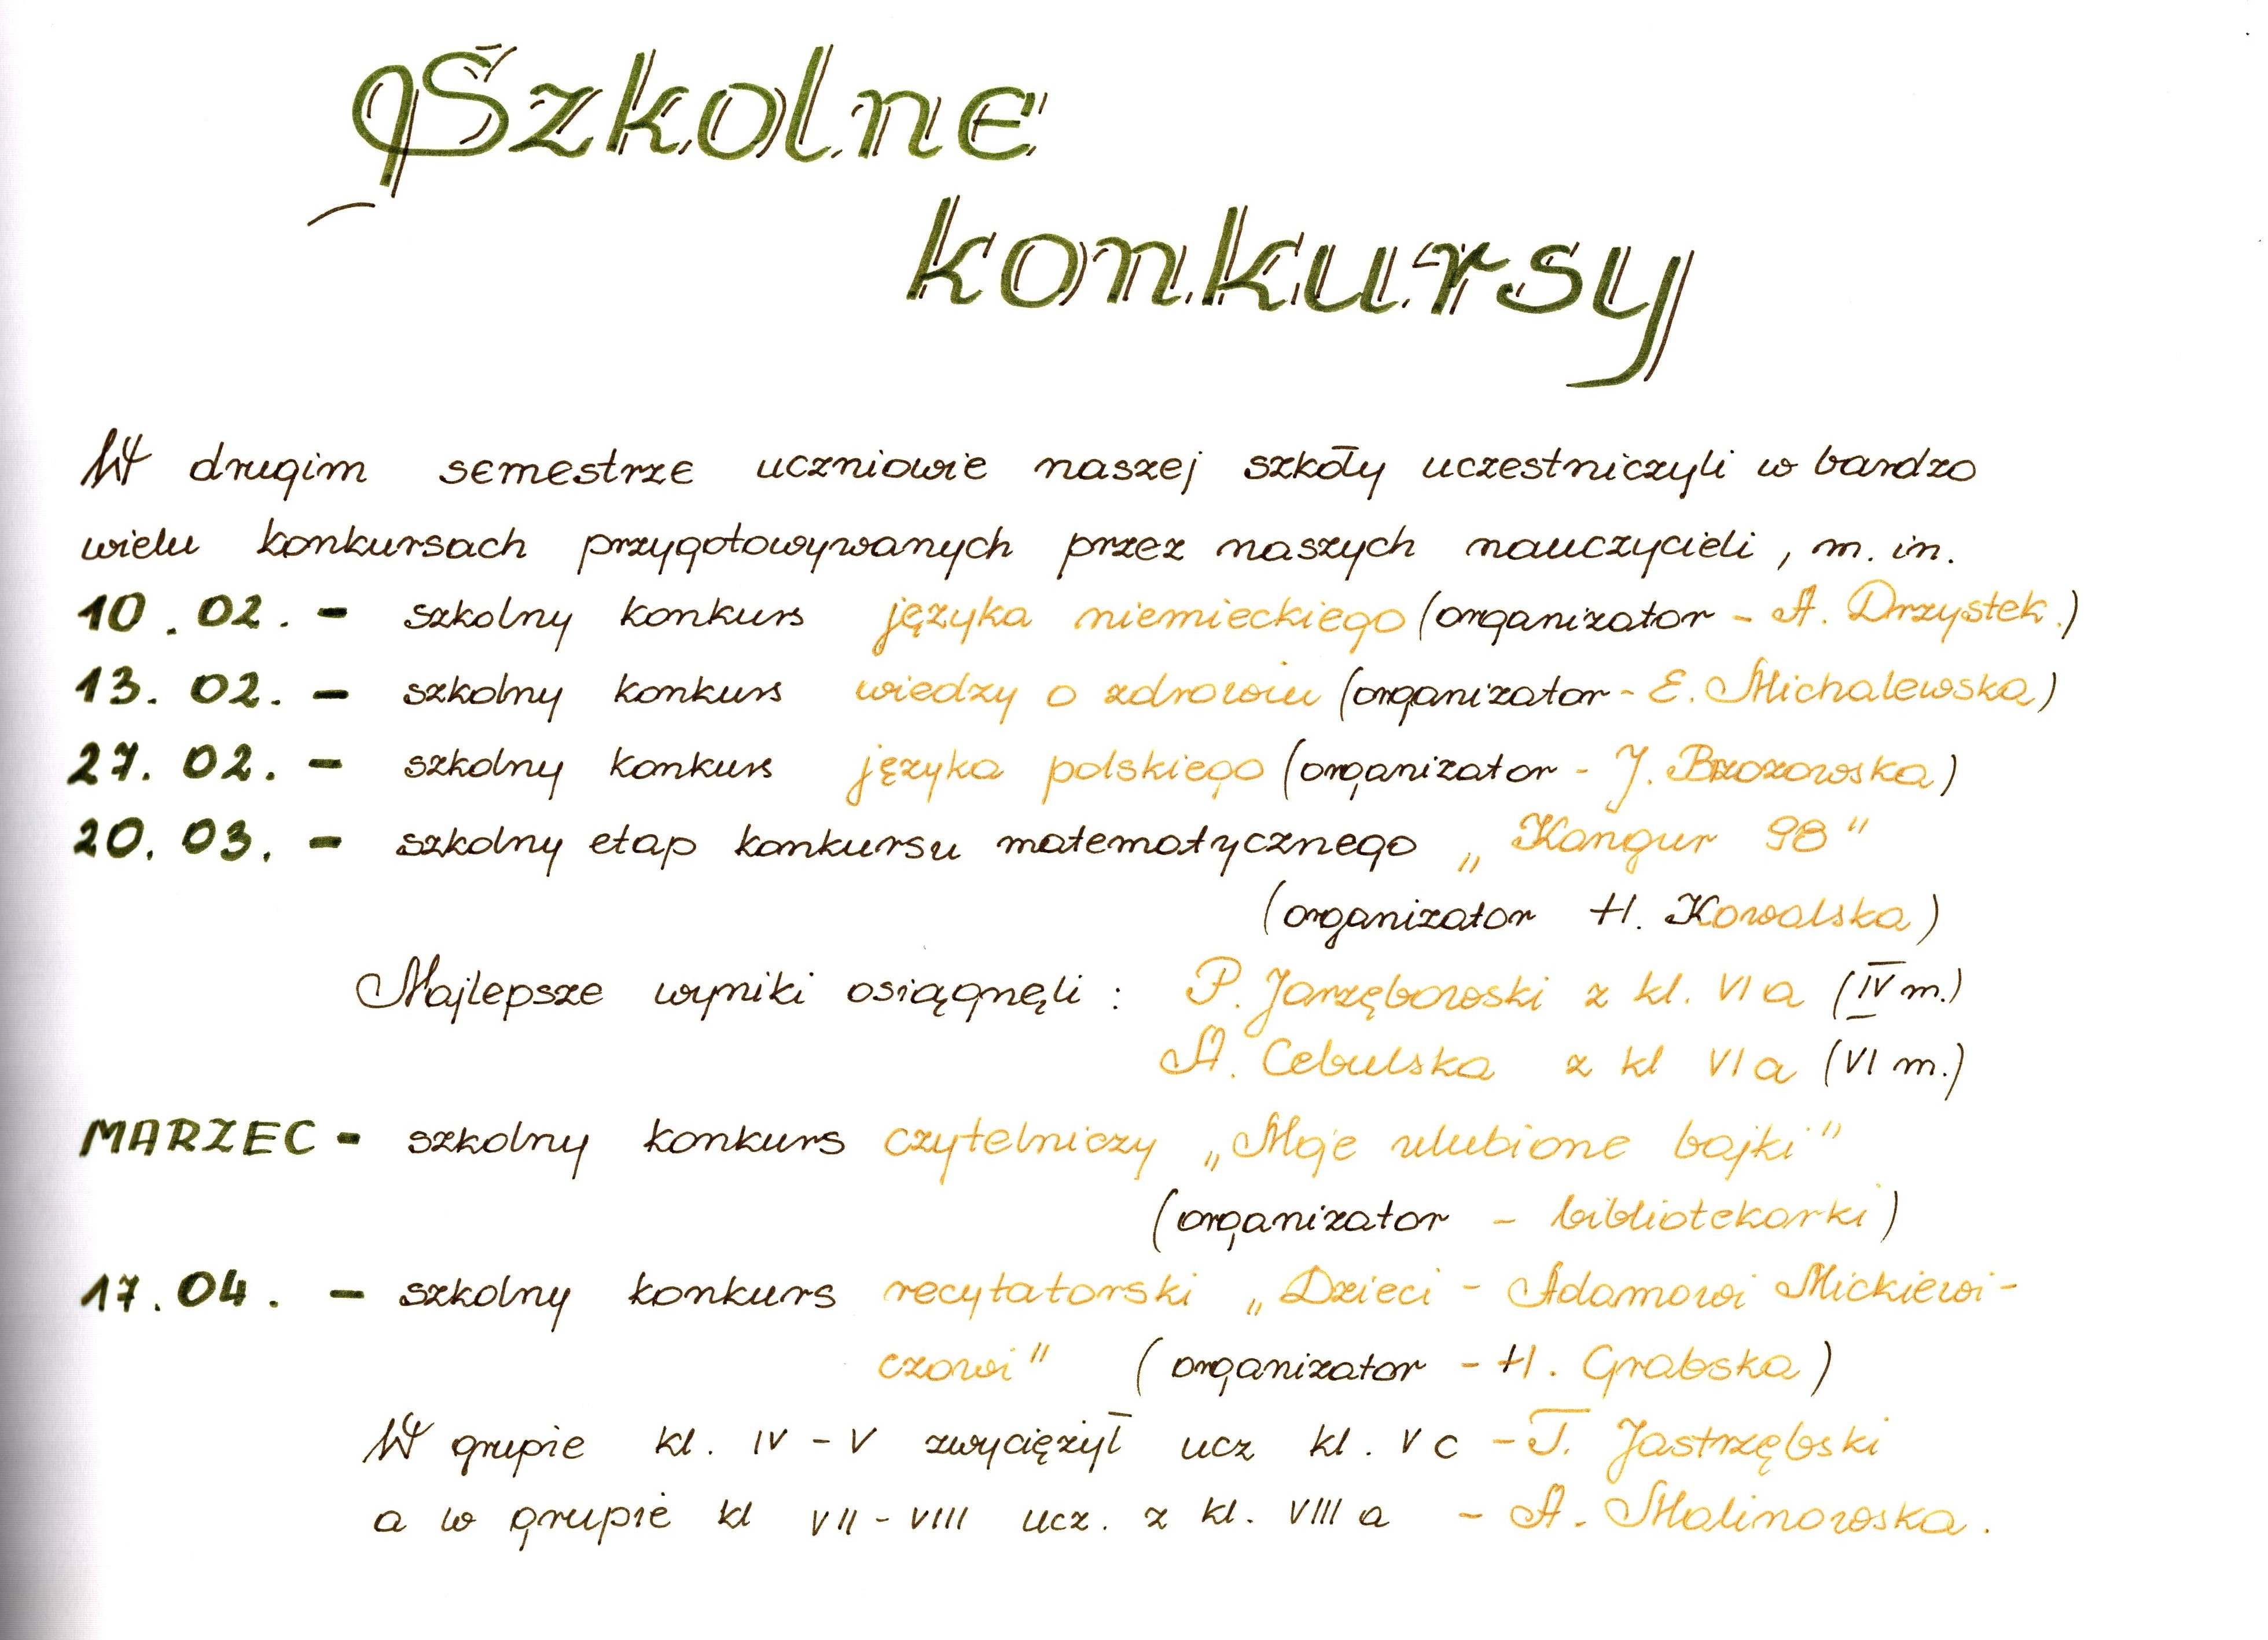 Szkolne
konkursy
W drugim semestrze uczniowie naszej szkoły uczestniczyli w bardzo
wielu konkursach przygotowywanych przez naszych nauczycieli, m. in.
10.02. - szkolny konkurs języka niemieckiego (organizator - A. Drzystek.)
13.02. - szkolny konkurs wiedzy o zdrowiu (organizator - E. Michalewska)
27.02. - szkolny konkurs języka polskiego (organizator - J. Brzozowska)
20.03. - szkolny etap konkursu matematycznego „Kangur 98"
(organizator H. Kowalska)
Najlepsze wyniki osiągnęli : P. Jarzęborski z kl. VI a (IV m.)
A. Cebulska z kl VI a (VI m.)
MARZEC - szkolny konkurs czytelniczy „Moje ulubione bajki"
(organizator - bibliotekarki)
17.04. - szkolny konkurs recytatorski „Dzieci - Adamowi Mickiewi-
czowi" (organizator - H. Grabska)
W grupie kl. IV - V zwyciężył ucz kl. V c - T. Jastrzębski
a w grupie kl VII - VIII ucz. z kl. VIII a - A. Malinowska.